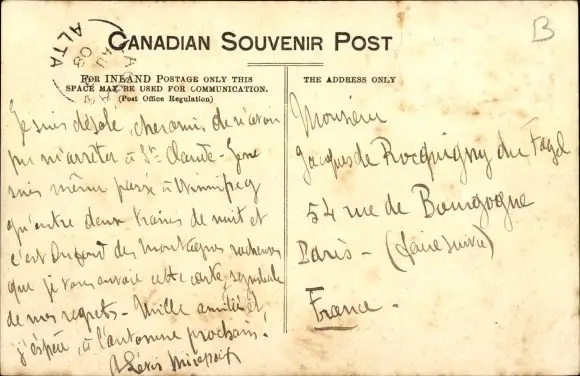 B
ALTA
CANADIAN SOUVENIR POST
FOR INLAND POSTAGE ONLY THIS
SPACE MAY BE USED FOR COMMUNICATION.
(Post Office Regulation)
Je suis désolé, cher ami, de n'avoir
pu m'arrêter à Ste Claude - Je ne
suis même passé à Winnipeg
qu'entre deux trains de nuit et
c'est du fond des Montagnes rocheuses
que je vous envoie cette carte, symbole
de mes regrets - Mille amitiés et,
j'espère, à l'automne prochain.
A Levis Mirepoix
THE ADDRESS ONLY
Monsieur
Jacques de Rocquigny du Fayel
54 rue de Bourgogne
Paris - (faire suivre)
France -